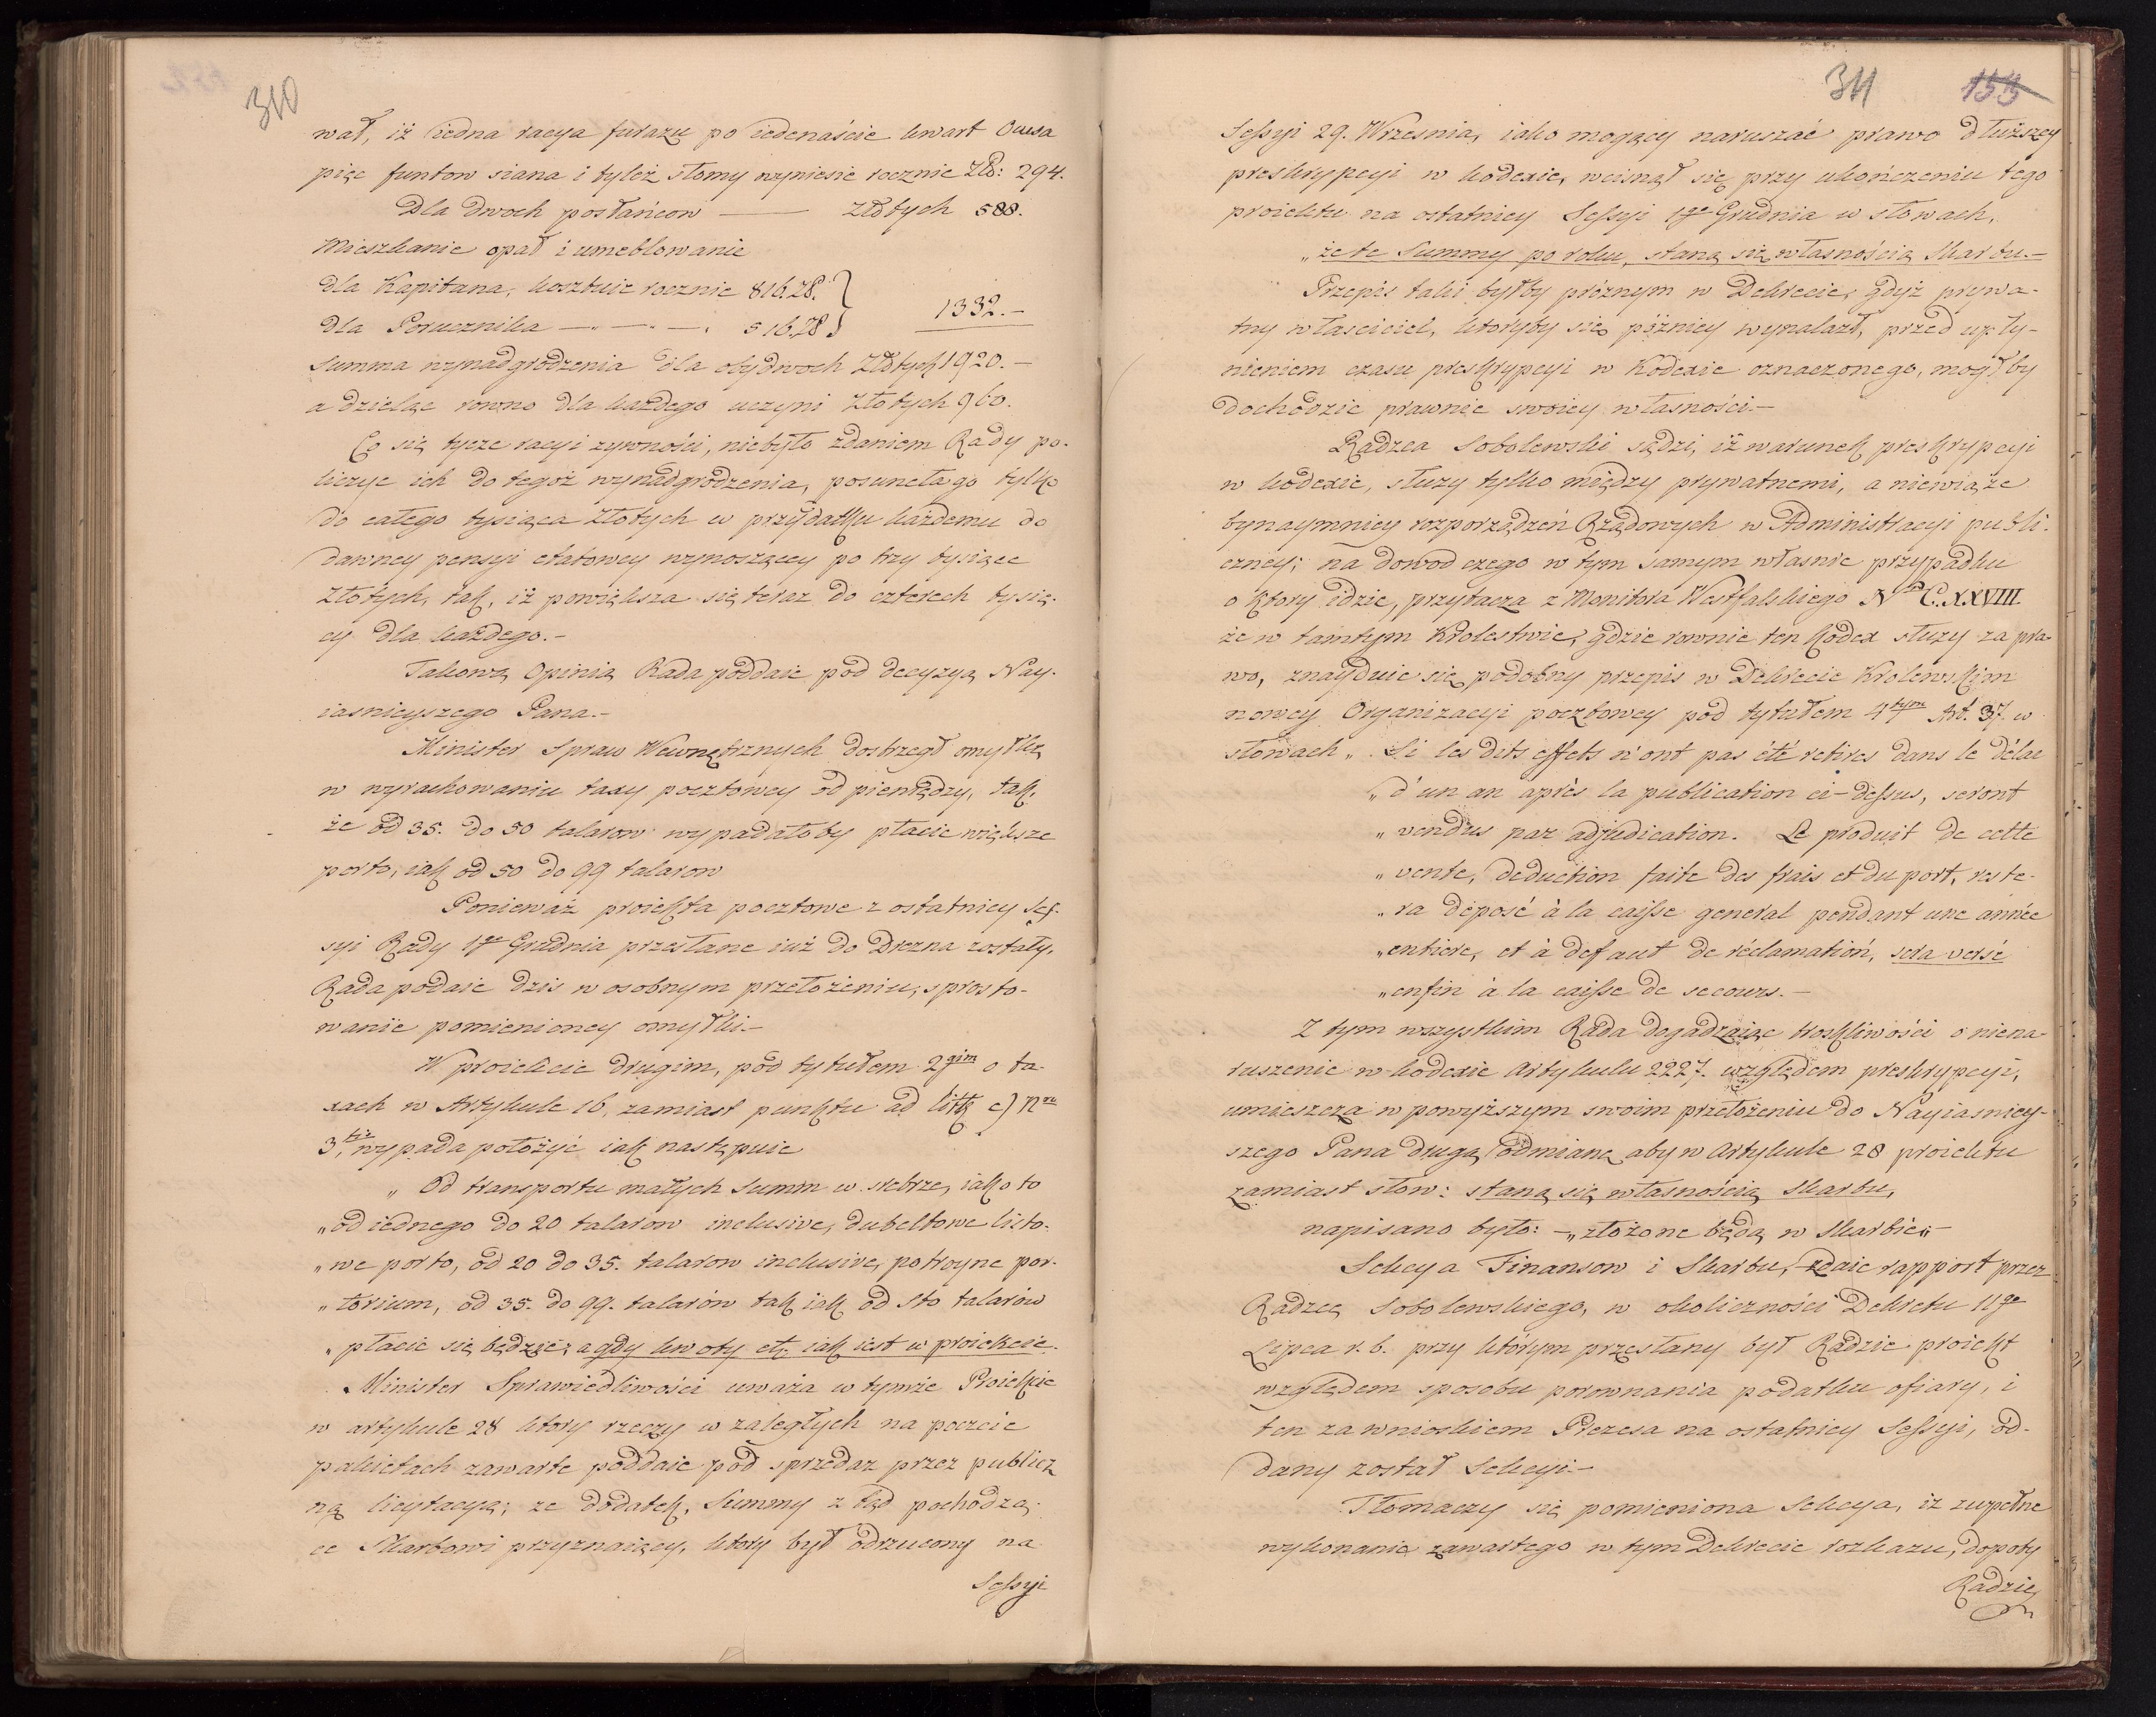 310
wał, iż iedna racya furazu po iedenaście kwart Owsa
pięc funtow siana i tyleż słomy wyniesie rocznie Złt: 294.
Dla dwoch posłańcow — Złłtych 588.
Mieszkanie opał i umeblowanie
dla Kapitana, kosztuie rocznie 816.28. }
dla Porucznika —.—.—. 516.28 } 1332.—
Summa wynadgrodzenia dla obydwoch Złłtych 1920.—
a dzieląc rowno dla każdego uczyni Złotych 960.
Co się tycze racyi zywności, niebyło zdaniem Rady po-
liczyc ich do tegoż wynadgrodzenia, posuneła go tylko
do całego tysiąca Złotych w przydatku każdemu do
dawney pensyi etatowey wynoszącey po trzy tysiące
Złotych, tak, iż powiększa się teraz do czterech tysię-
cy dla każdego.—
Takową Opinią Rada poddaie pod decyzyą Nay-
iasnieyszego Pana.—
Minister Spraw Wewnętrznych dostrzegł omyłkę
w wyrachowaniu taxy pocztowey od pieniędzy, tak,
że od 35. do 50 talarow wypadałoby płacic większe
porto, iak od 50 do 99 talarow
Ponieważ proiekta pocztowe z ostatniey Ses-
syi Rady 1go Grudnia przesłane iuż do Drezna zostały,
Rada podaie dzis w osobnym przełożeniu, sprosto-
wanie pomienioney omyłki.—
W proiekcie drugim, pod tytułem 2gim o ta-
xach w Artykule 16, zamiast punktu ad litt c) Nro
3tio, wypada położyć iak następuie
„ Od transportu małych Summ w srebrze, iako to
„ od iednego do 20 talarow inclusive, dubeltowe listo-
„ we porto, od 20 do 35. talarow inclusive, potroyne por-
„ torium, od 35. do 99. talarów tak iak od sto talarów
„ płacic się będzie; a gdy kwoty etc iak iest w proiekcie.
Minister Sprawiedliwości uważa w tymże Proiekcie
w artykule 28 ktory rzeczy w zaległych na poczcie
pakietach zawarte poddaie pod sprzedaz przez publicz
ną licytacyą; ze dodatek, Summy z tąd pochodzą-
ce Skarbowi przyznaiący, ktory był odrzucony na
Sessyi
311 155
Sessyi 29. Wrzesnia, iako mogący naruszać prawo dłuższey
preskrypcyi w kodexie, wcisnął się przy ukończeniu tego
proiektu na ostatniey Sessyi 1go Grudnia w słowach,
„ że te Summy po roku, staną się własnością Skarbu.—
Przepis taki byłby próżnym w Dekrecie, gdyż prywa-
tny właściciel, ktoryby się pózniey wynalazł, przed upły-
nieniem czasu preskrypcyi w Kodexie oznaczonego, mógłby
dochodzic prawnie swoiey własności.—
Radzca Sobolewski sądzi, iż warunek preskrypcyi
w kodexie, służy tylko między prywatnemi, a niewiąże
bynaymniey rozporządzeń Rządowych w Administracyi publi-
czney; na dowod czego w tym samym własnie przypadku
o ktory idzie, przytacza z Monitora Westfalskiego Nro C.XXVIII.
że w tamtym Krolestwie, gdzie rownie ten kodex służy za pra-
wo, znayduie się podobny przepis w Dekrecie Krolewskim
nowey Organizacyi pocztowey pod tytułem 4tym Art. 37. w
słowach „ Si les dits effets n'ont pas été retires dans le délai
„ d'un an après la publication ci-dessus, seront
„ vendus par adjudication. Le produit de cette
„ vente, deduction faite des frais et du port, reste-
„ ra déposé à la caisse general pendant une année
„ entiere, et à defaut de réclamation, sera versé
„ enfin à la caisse de secours.—
Z tym wszystkim Rada dogadzaiąc troskliwości o niena-
ruszenie w kodexie Artykulu 2227. względem preskrypcyi,
umieszcza w powyższym swoim przełożeniu do Nayiasniey-
szego Pana drugą odmianę aby w Artykule 28 proiektu
zamiast słow: staną się własnością Skarbu,
napisano było: —„ złożone będą w Skarbie„—
Sekcya Finansow i Skarbu, zdaie rapport przez
Radzcę Sobolewskiego, w okoliczności Dekretu 11go
Lipca r. b. przy którym przesłany był Radzie proiekt
względem sposobu porownania podatku ofiary, i
ten za wnioskiem Prezesa na ostatniey Sessyi, od-
dany został Sekcyi.—
Tłomaczy się pomieniona Sekcya, iż zupełne
wykonanie zawartego w tym Dekrecie rozkazu, dopoty
Radzie